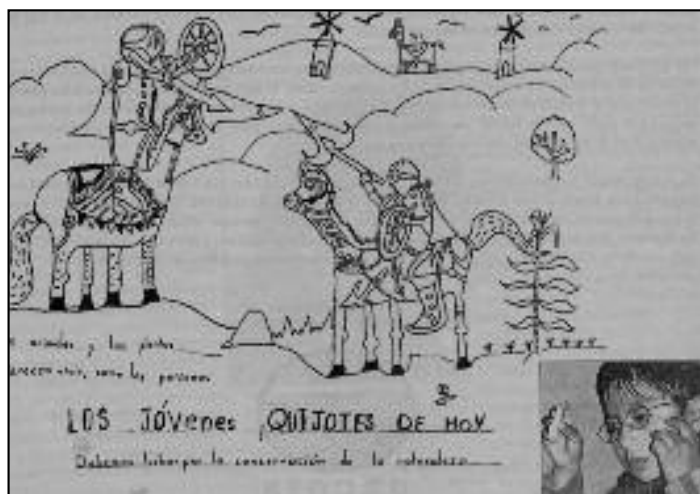 y las
como las personas
LOS JÓVenes QUIJOTES DE HOY
Debemos luchar por la conservación de la naturaleza